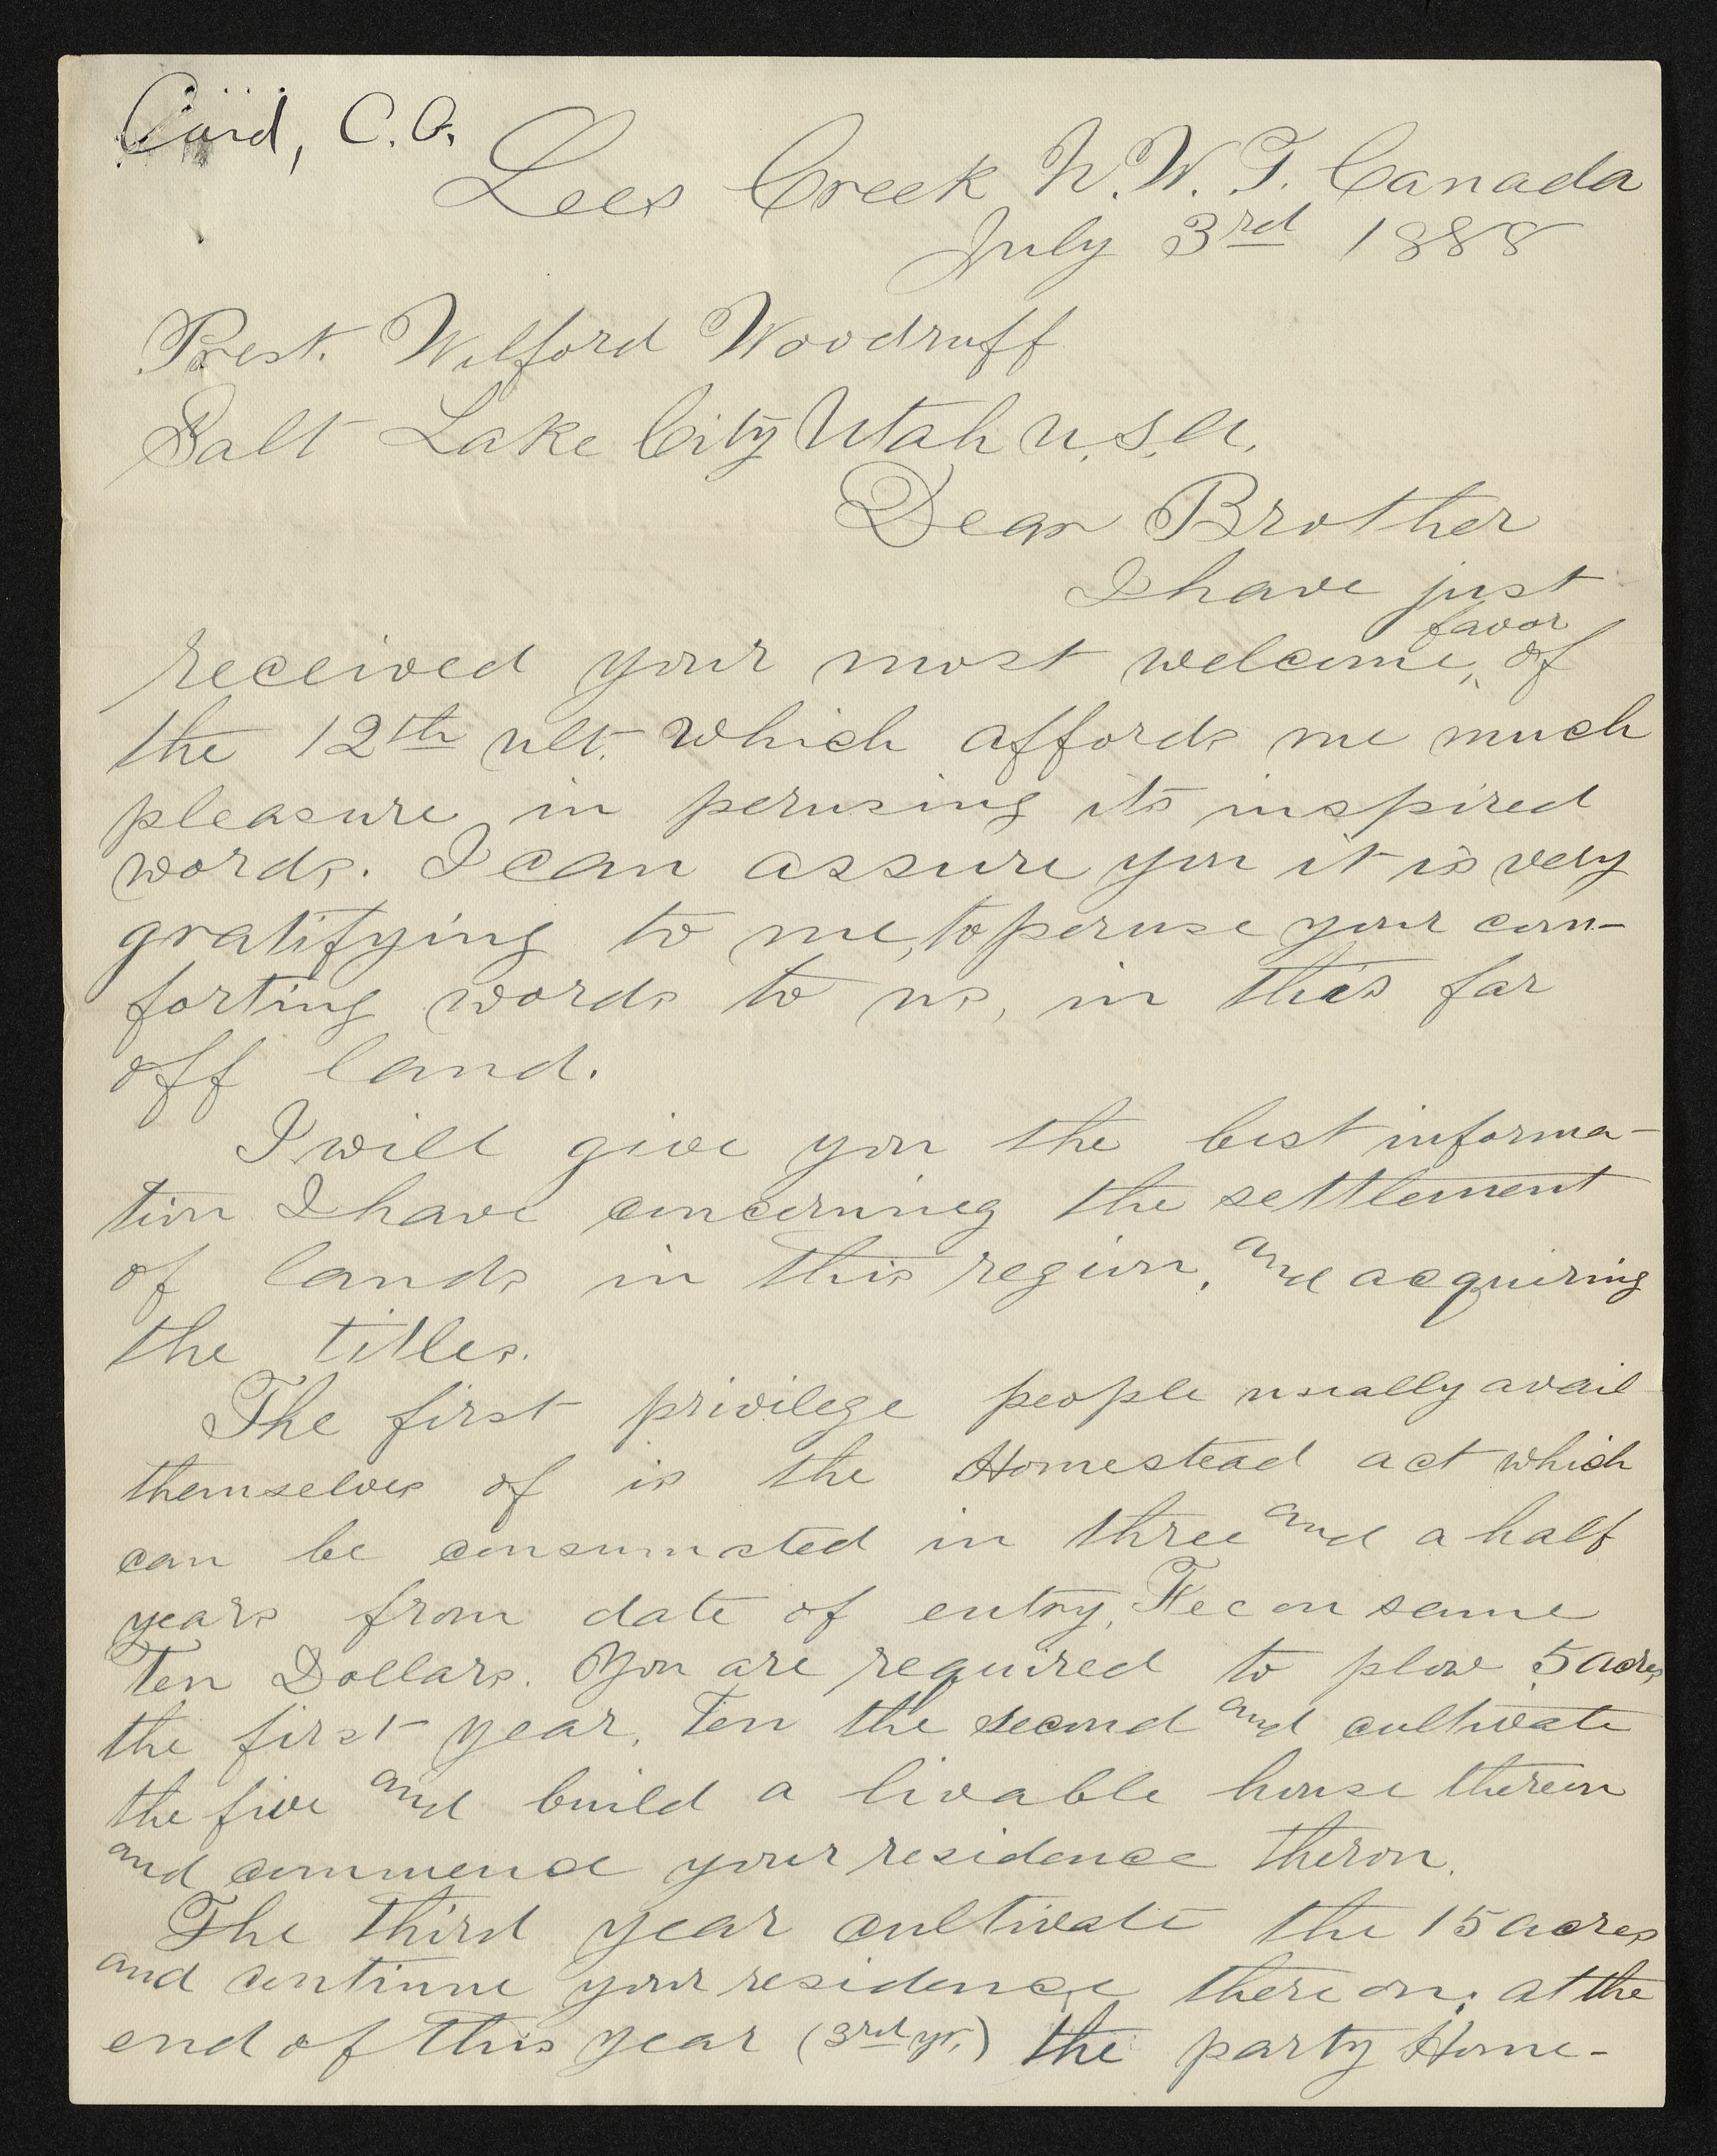 Card, C.O.
Lees Creek N.W.T. Canada
July 3rd 1888
Prest. Wilford Woodruff
Salt Lake City Utah U.S.A.
Dear Brother
I have just
favor
received your most welcome, of
the 12th ult. which affords me much
pleasure in perusing its inspired
words. I can assure you it is very
gratifying to me, to peruse your com-
forting words to us, in this far
off land.
I will give you the best informa-
tion I have concerning the settlement
of lands in this region, and acquiring
the titles.
The first privilege people usually avail
themselves of is the Homestead act which
can be consumated in three and a half
years from date of entry, Fee on same
Ten Dollars. You are required to plow 5 acres
the first year, Ten the second and cultivate
the five and build a livable house thereon
and commence your residence theron.
The third year cultivate the 15 acres
and continue your residence thereon; at the
end of this year (3rd yr.) the party Home-